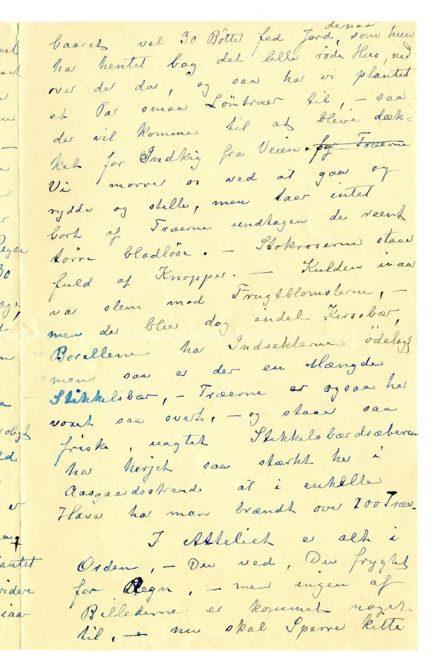 desuden
baaret vel 30 Bøtter fed Jord, som hun
har hentet bag det lille røde Hus, ned
over der da, og saa har vi plantet
et Par smaa Löntrær til, – saa
der vil komme til at bleve dæk-
ket for Indkig fra Veien.
Vi morer os ved at gaa og
rydde og stelle, men taer intet
bort af Træerne undtagen de reent
tørre bladløse. – Stokroserne staar
fuld af Knopper. – Kulden
var slem mod Frugtblomsterne, –
men der blev dog endel Kirsebær,
har Indsekterne ödelagt
men saa er der en Mængde
Stikkelsbær, – Træerne er ogsaa her
voxet saa svert, – og staar saa
friske, uagtet Stikkelsbærdræberen
har herjet saa stærkt her i
Aasgaardsstrand at i enkelte
Haver har man brændt over 200 Trær.
I Atteliet er alt i
Orden, – Du ved, Du frygtet
for Regn, – men ingen af
Billederne er kommet noget
til, – nu skal Sperre kitte